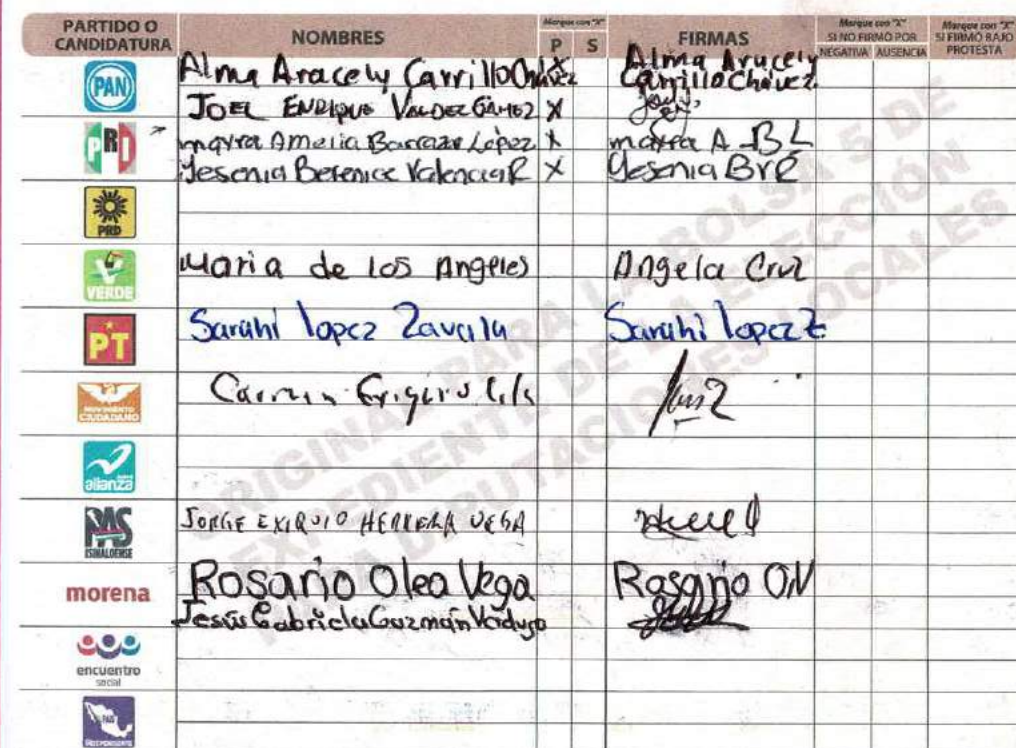 PARTIDO O CANDIDATURA
NOMBRES
Marque con "X"
P S
FIRMAS
Marque con "X" SI NO FIRMÓ POR
NEGATIVA AUSENCIA
Marque con "X" SI FIRMÓ BAJO PROTESTA
PAN Alma Aracely Carrillo Chávez X Alma Aracely Carrillo Chávez
JOEL ENRIQUE VALDEZ GAMEZ X
PRI mayra Amelia Barraza López X mayra A B L
Yesenia Berenice Valencia R X Yesenia BVR
PRD
VERDE Maria de los Angeles Angela Cruz
PT Sarahi lopez Zavala Sarahi lopez Z
MOVIMIENTO CIUDADANO Carmen
nueva alianza
PAS SINALOENSE JORGE EXIQUIO HERRERA VEGA
morena Rosario Olea Vega Rosario OV
Jesús Gabriela Guzmán Verdugo
encuentro social
PAIS INDEPENDIENTE
ORIGINAL PARA LA BOLSA 5 DE
EXPEDIENTE DE LA ELECCIÓN
PARA DIPUTACIONES LOCALES